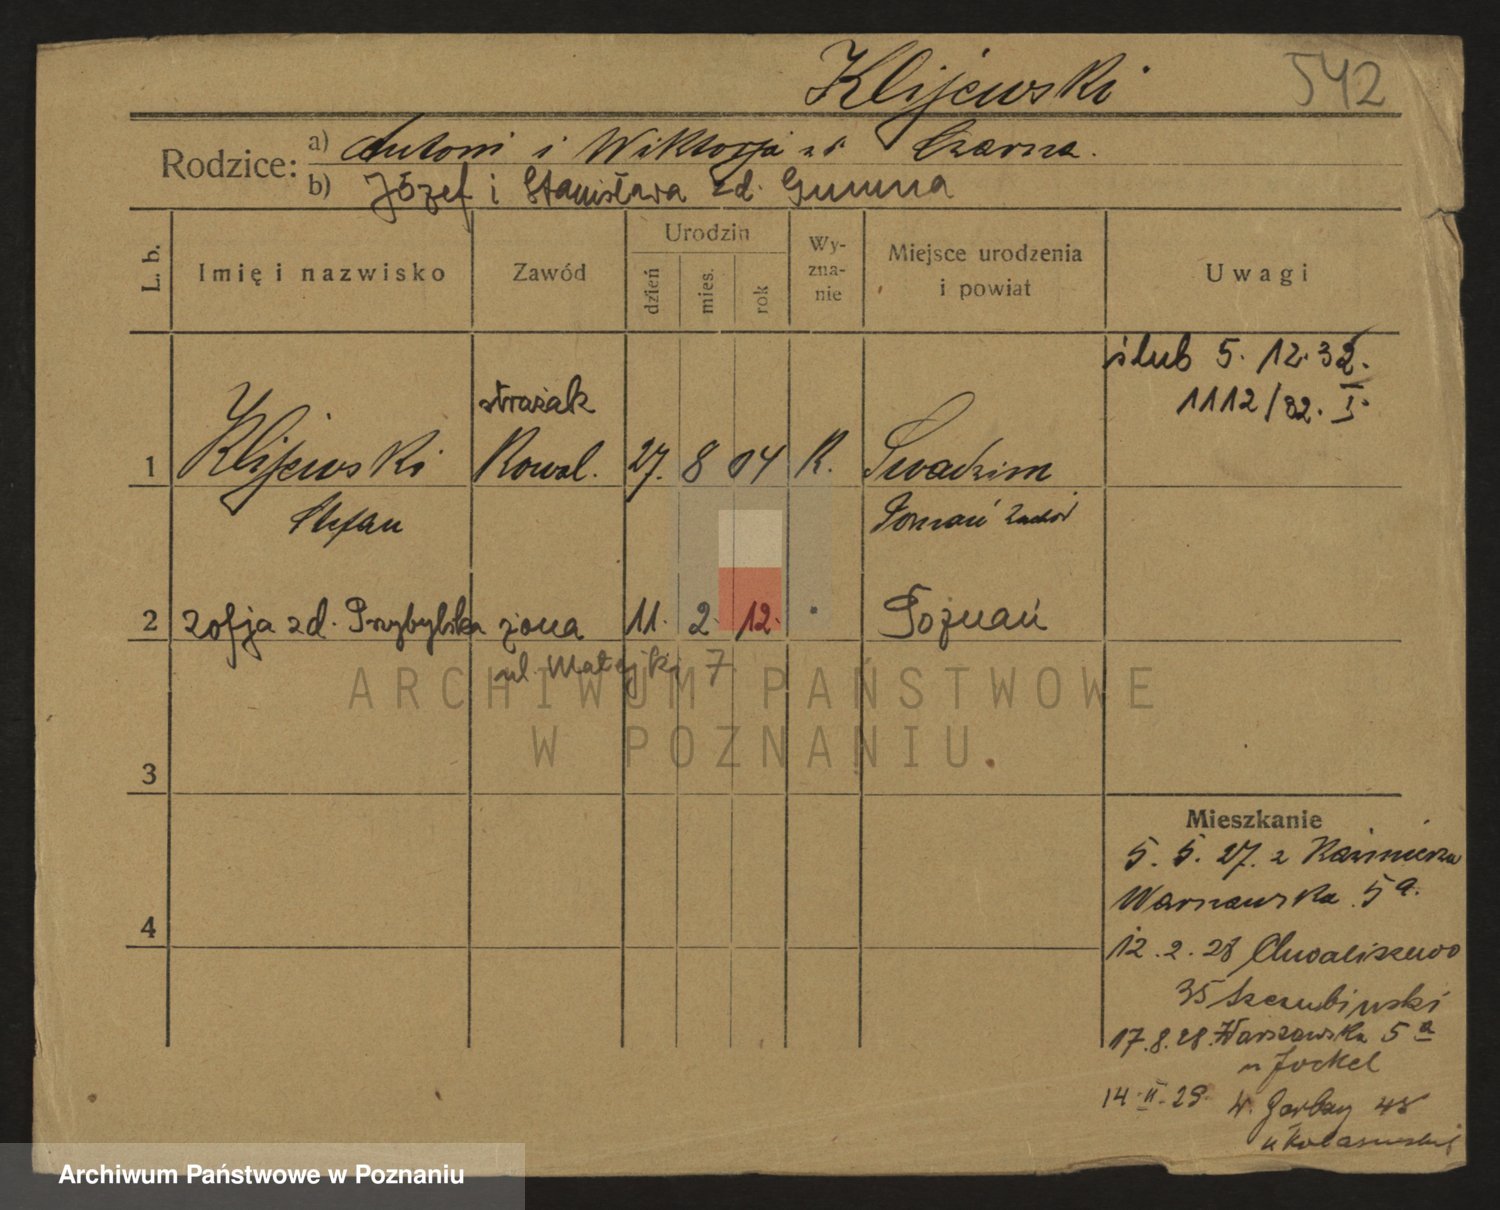 Klijewski 542
Rodzice: a) Antoni i Wiktorja zd Czarna.
b) Józef i Stanisława zd. Gumna
L. b.
Imię i nazwisko
Zawód
Urodzin
dzień
mies.
rok
Wy-
zna-
nie
Miejsce urodzenia
i powiat
Uwagi
ślub 5. 12. 32.
1112/32. I.
strażak
1 Klijewski Kowal. 27. 8 04 R. Swadzim
Stefan Poznań Zachód
2 Zofja zd. Przybylska żona 11. 2. 12. Poznań
ul. Matejki 7.
ARCHIWUM PAŃSTWOWE
W POZNANIU
3
Mieszkanie
5. 5. 27. z Kaźmierza
Warszawska 5a.
4
12. 2. 28 Chwaliszewo
35 Szczubiński
17. 8. 28. Warszawska 5a
u Jockel
14. II. 29. W. Garbary 48
u
Archiwum Państwowe w Poznaniu